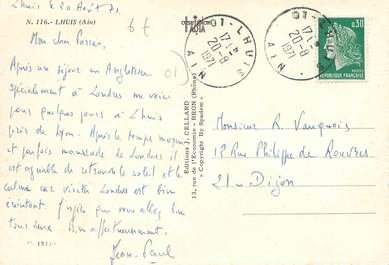 Lhuis le 20 Août 71.
N. 116.- LHUIS (Ain)
6 €
Mon cher
Après un séjour en Angleterre
spécialement à Londres me voici
pour quelques jours à Lhuis
près de Lyon. Après le temps moyen
et parfois maussade de Londres il
est agréable de retrouver le soleil et le
calme car visiter Londres est bien
éreintant. J'espère que vous allez bien
tous deux. Bien affectueusement.
Jean-Paul
01
Editions J. CELLARD
13, rue de l'Economie - BRON (Rhône)
« Copyright By Spadem »
01-LHUIS
20-8
1971
AIN
01-LHUIS
20-8
1971
AIN
0,30
REPUBLIQUE FRANÇAISE
Monsieur R. Vauquois
18 Rue Philippe de Rouvres
21 - Dijon